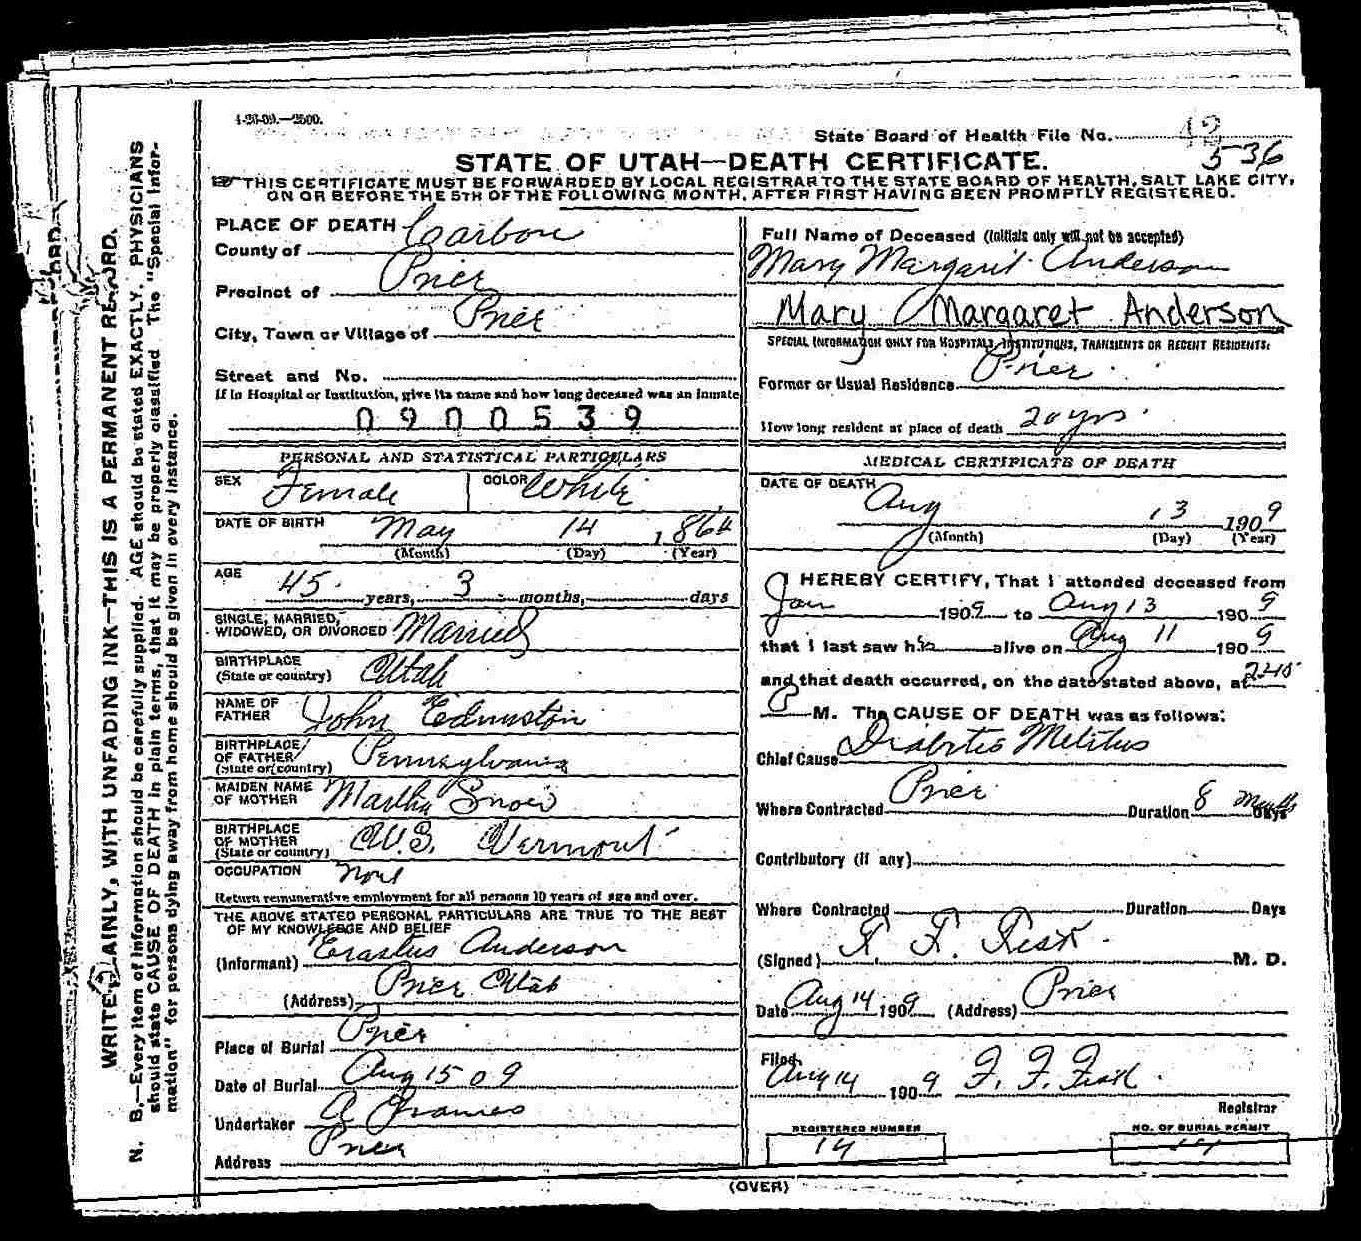 4-26-09.—2500.
State Board of Health File No. 12
536
STATE OF UTAH—DEATH CERTIFICATE.
THIS CERTIFICATE MUST BE FORWARDED BY LOCAL REGISTRAR TO THE STATE BOARD OF HEALTH, SALT LAKE CITY,
ON OR BEFORE THE 5TH OF THE FOLLOWING MONTH, AFTER FIRST HAVING BEEN PROMPTLY REGISTERED.
PLACE OF DEATH
County of Carbon
Precinct of Price
City, Town or Village of Price
Street and No.
If in Hospital or Institution, give its name and how long deceased was an inmate
0900539
PERSONAL AND STATISTICAL PARTICULARS
SEX Female COLOR White
DATE OF BIRTH May 14 1864
(Month) (Day) (Year)
AGE 45 years, 3 months, days
SINGLE, MARRIED,
WIDOWED, OR DIVORCED Married
BIRTHPLACE
(State or country) Utah
NAME OF
FATHER John Edmiston
BIRTHPLACE
OF FATHER
(State or country) Pennsylvania
MAIDEN NAME
OF MOTHER Martha Snow
BIRTHPLACE
OF MOTHER
(State or country) U.S. Vermont
OCCUPATION None
Return remunerative employment for all persons 10 years of age and over.
THE ABOVE STATED PERSONAL PARTICULARS ARE TRUE TO THE BEST
OF MY KNOWLEDGE AND BELIEF
(Informant) Erastus Anderson
(Address) Price Utah
Place of Burial Price
Date of Burial Aug 15 09
Undertaker A
Address Price
Full Name of Deceased (Initials only will not be accepted)
Mary Margarit Anderson
Mary Margaret Anderson
SPECIAL INFORMATION ONLY FOR HOSPITALS, INSTITUTIONS, TRANSIENTS OR RECENT RESIDENTS:
Former or Usual Residence Price
How long resident at place of death 20 yrs.
MEDICAL CERTIFICATE OF DEATH
DATE OF DEATH
Aug 13 1909
(Month) (Day) (Year)
I HEREBY CERTIFY, That I attended deceased from
Jan 1909 to Aug 13 1909
that I last saw her alive on Aug 11 1909
and that death occurred, on the date stated above, at 2:40
P M. The CAUSE OF DEATH was as follows:
Chief Cause Diabitis Melitus
Where Contracted Price Duration 8 Months Days
Contributory (if any)
Where Contracted Duration Days
(Signed) F. F. Fisk. M. D.
Date Aug 14 1909 (Address) Price
Filed
Aug 14 1909 F. F. Fisk.
Registrar
REGISTERED NUMBER
14
NO. OF BURIAL PERMIT
14
(OVER)
WRITE PLAINLY, WITH UNFADING INK—THIS IS A PERMANENT RECORD.
N. B.—Every item of information should be carefully supplied. AGE should be stated EXACTLY. PHYSICIANS
should state CAUSE OF DEATH in plain terms, that it may be properly classified. The "Special Infor-
mation" for persons dying away from home should be given in every instance.